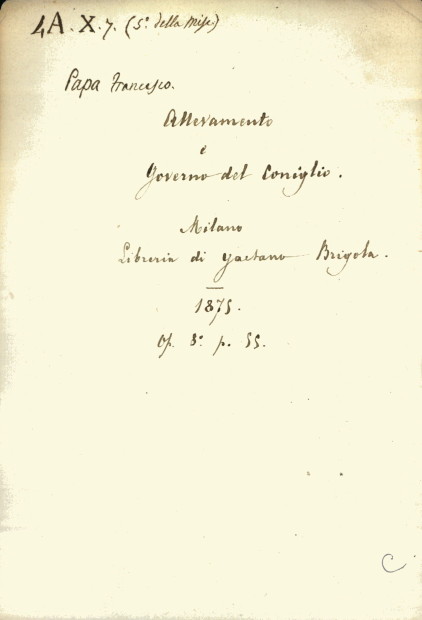 4A. X. 7. (5° della Misc.)
Papa Francesco.
Allevamento
e
Governo del Coniglio.
Milano
Libreria di Gaetano Brigola.
1875.
Op. 8° p. 55.
C